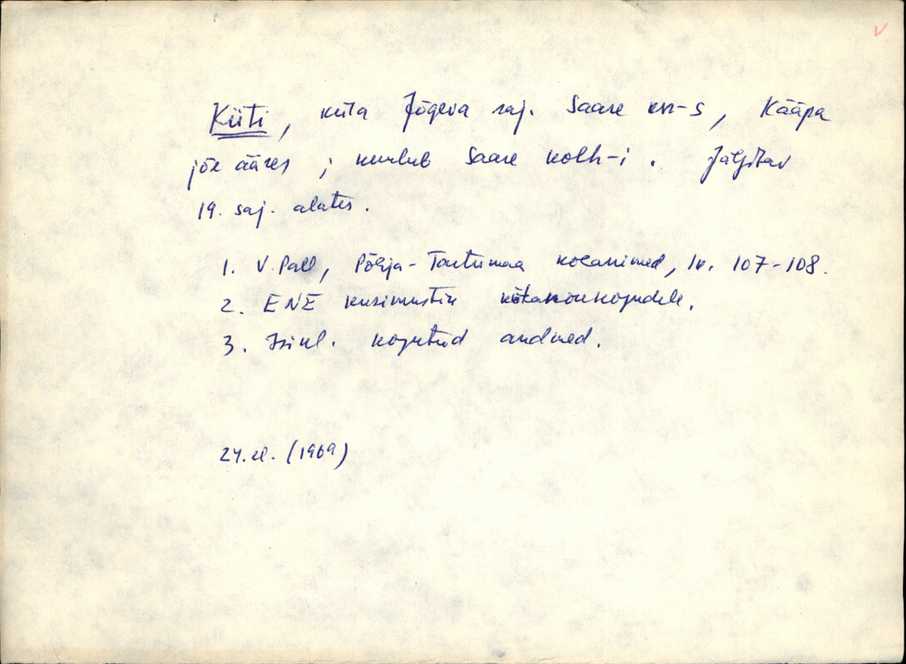 Kiiti, küla Jõgeva raj. Saare kn-s, Kääpa
jõe ääres; kuulub Saare kolh-i. Jälgitav
19. saj. alates.
1. V. Pall, Põhja-Tartumaa kohanimed, lk. 107-108.
2. ENE küsimustik külanõukogudele.
3. Isikl. kogutud andmed.
24. el. (1969)